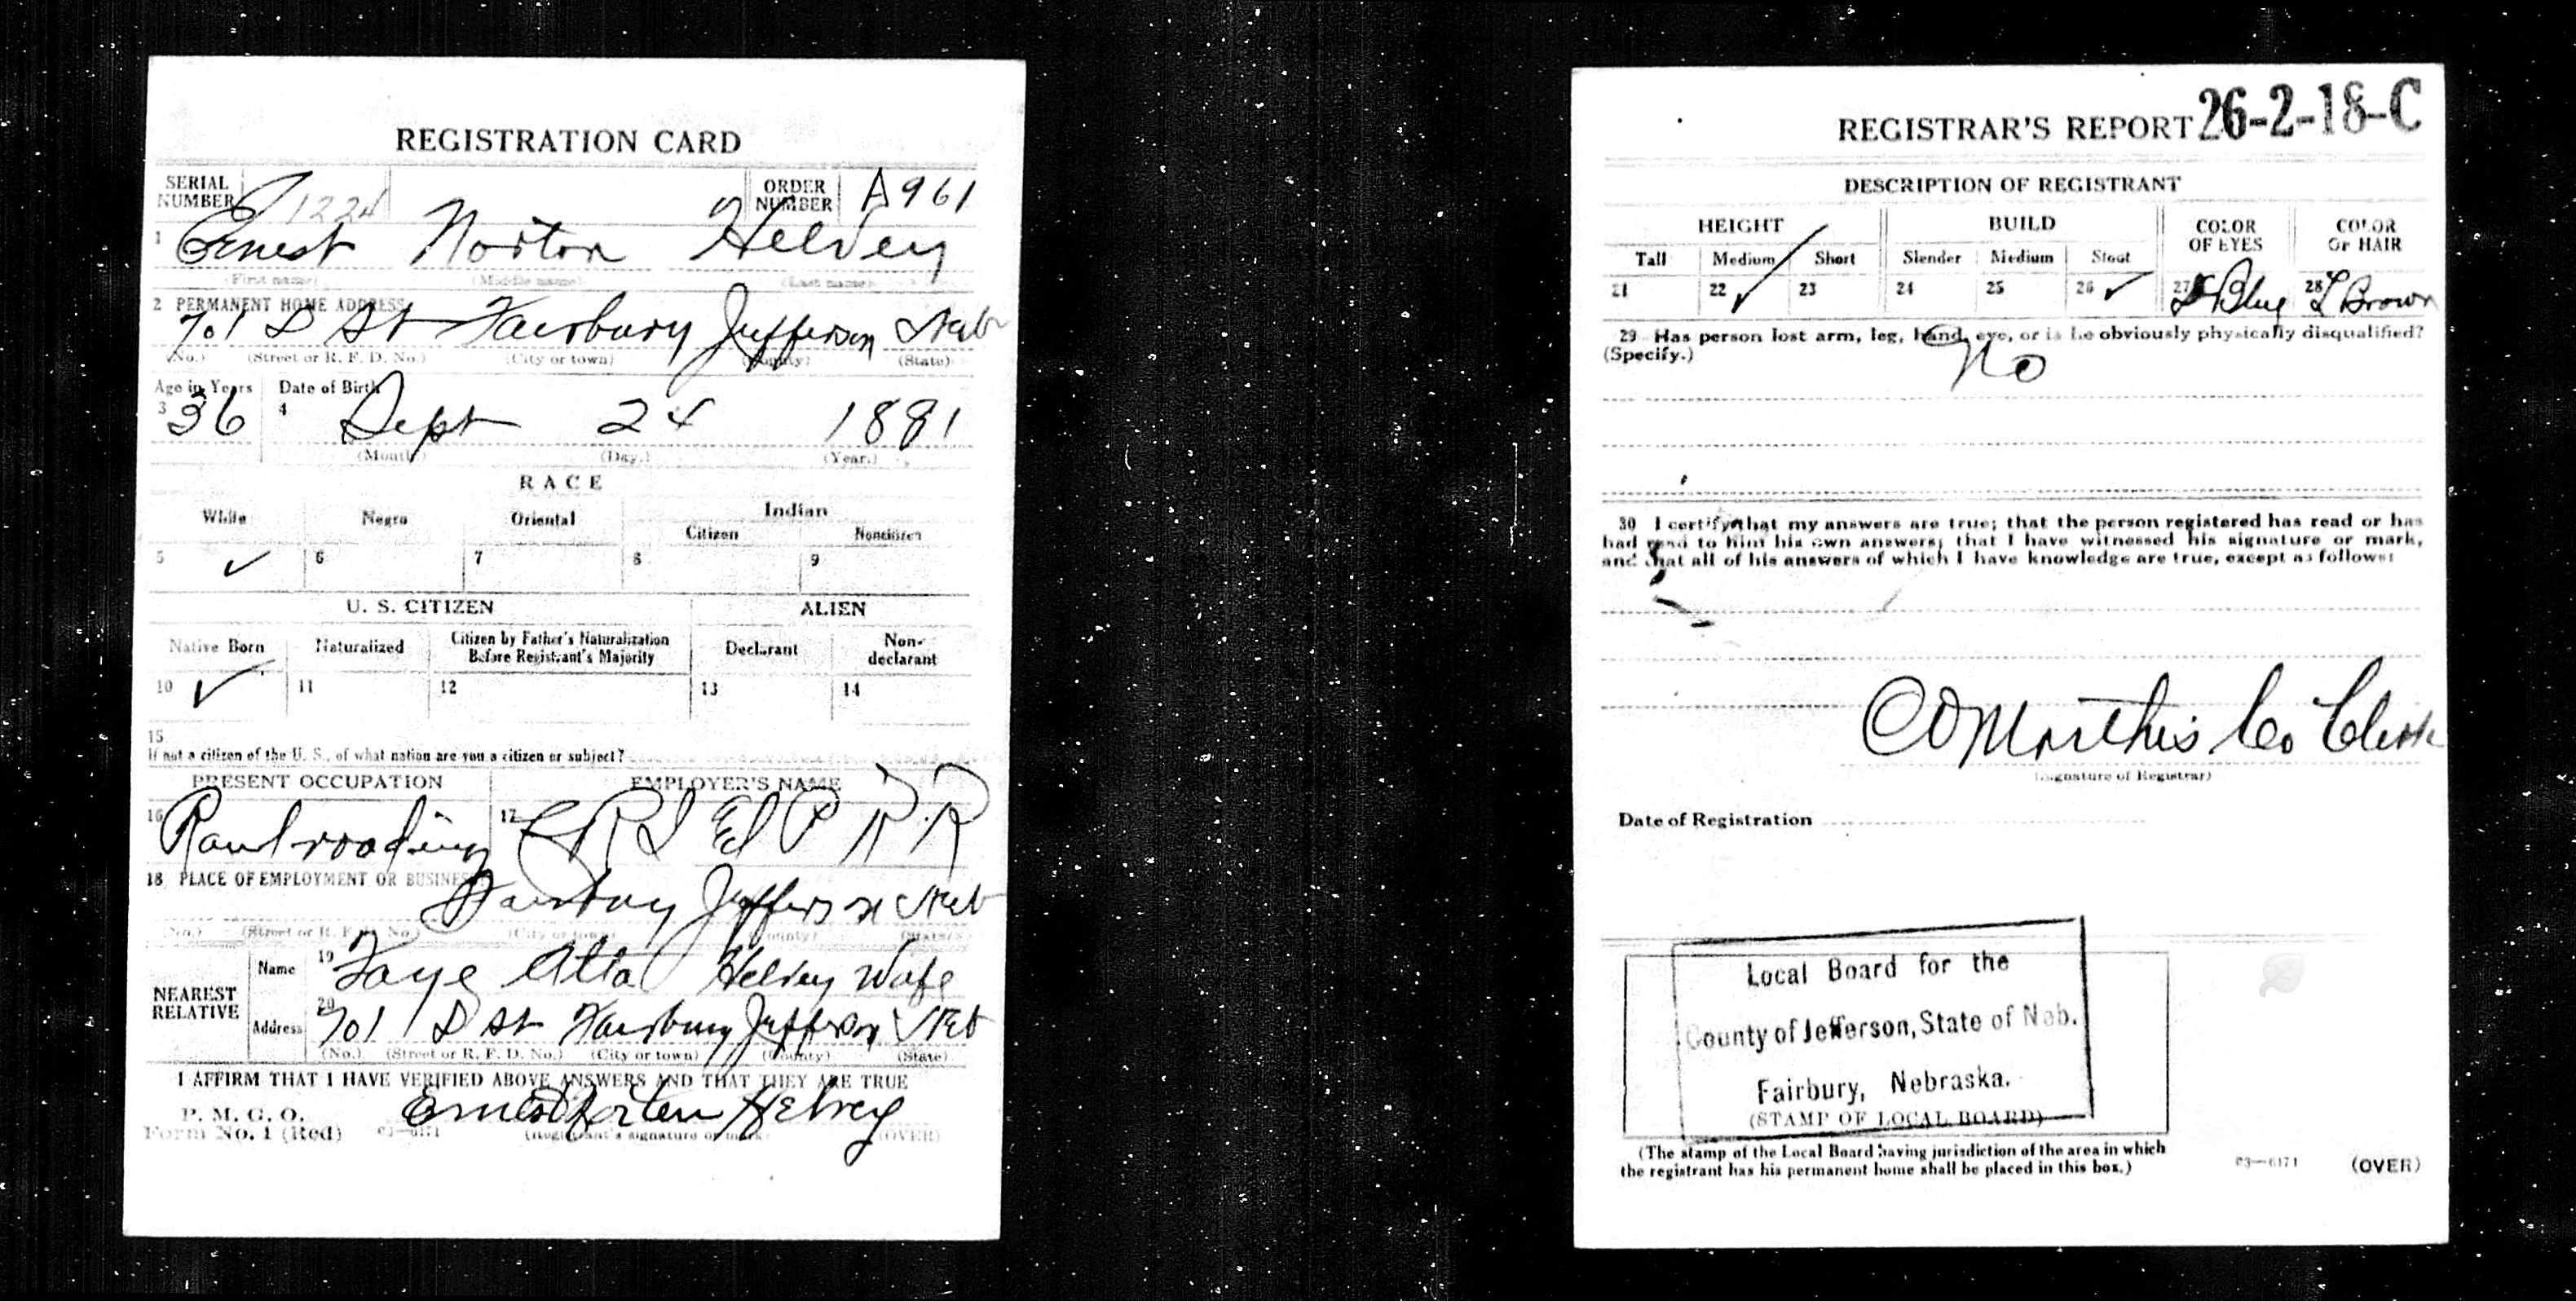 REGISTRATION CARD
SERIAL NUMBER 1224 ORDER NUMBER A961
1 Ernest Norton Helvey
(First name) (Middle name) (Last name)
2 PERMANENT HOME ADDRESS
701 D St Fairbury Jefferson Neb
(No.) (Street or R. F. D. No.) (City or town) (County) (State)
Age in Years Date of Birth
3 36 4 Sept 24 1881
(Month.) (Day.) (Year.)
RACE
White Negro Oriental Indian
Citizen Noncitizen
5 ✓ 6 7 8 9
U. S. CITIZEN ALIEN
Native Born Naturalized Citizen by Father's Naturalization Before Registrant's Majority Declarant Non-declarant
10 ✓ 11 12 13 14
15
If not a citizen of the U. S., of what nation are you a citizen or subject?
PRESENT OCCUPATION EMPLOYER'S NAME
16 Railroading 17 C R I & P R R
18 PLACE OF EMPLOYMENT OR BUSINESS
Fairbury Jefferson Neb
(No.) (Street or R. F. D. No.) (City or town) (County) (State)
NEAREST RELATIVE
Name 19 Faye Alta Helvey Wife
Address 20 701 D St Fairbury Jefferson Neb
(No.) (Street or R. F. D. No.) (City or town) (County) (State)
I AFFIRM THAT I HAVE VERIFIED ABOVE ANSWERS AND THAT THEY ARE TRUE
P. M. G. O.
Form No. 1 (Red) 03—6171 Ernest Norton Helvey
(Registrant's signature or mark) (OVER)
REGISTRAR'S REPORT 26-2-18-C
DESCRIPTION OF REGISTRANT
HEIGHT BUILD COLOR OF EYES COLOR OF HAIR
Tall Medium Short Slender Medium Stout
21 22 ✓ 23 24 25 26 ✓ 27 Blue 28 L Brown
29 Has person lost arm, leg, hand, eye, or is he obviously physically disqualified?
(Specify.) No
30 I certify that my answers are true; that the person registered has read or has
had read to him his own answers; that I have witnessed his signature or mark,
and that all of his answers of which I have knowledge are true, except as follows:
Co Clerk
(Signature of Registrar)
Date of Registration
Local Board for the
County of Jefferson, State of Neb.
Fairbury, Nebraska.
(STAMP OF LOCAL BOARD)
(The stamp of the Local Board having jurisdiction of the area in which
the registrant has his permanent home shall be placed in this box.)
03—6171 (OVER)